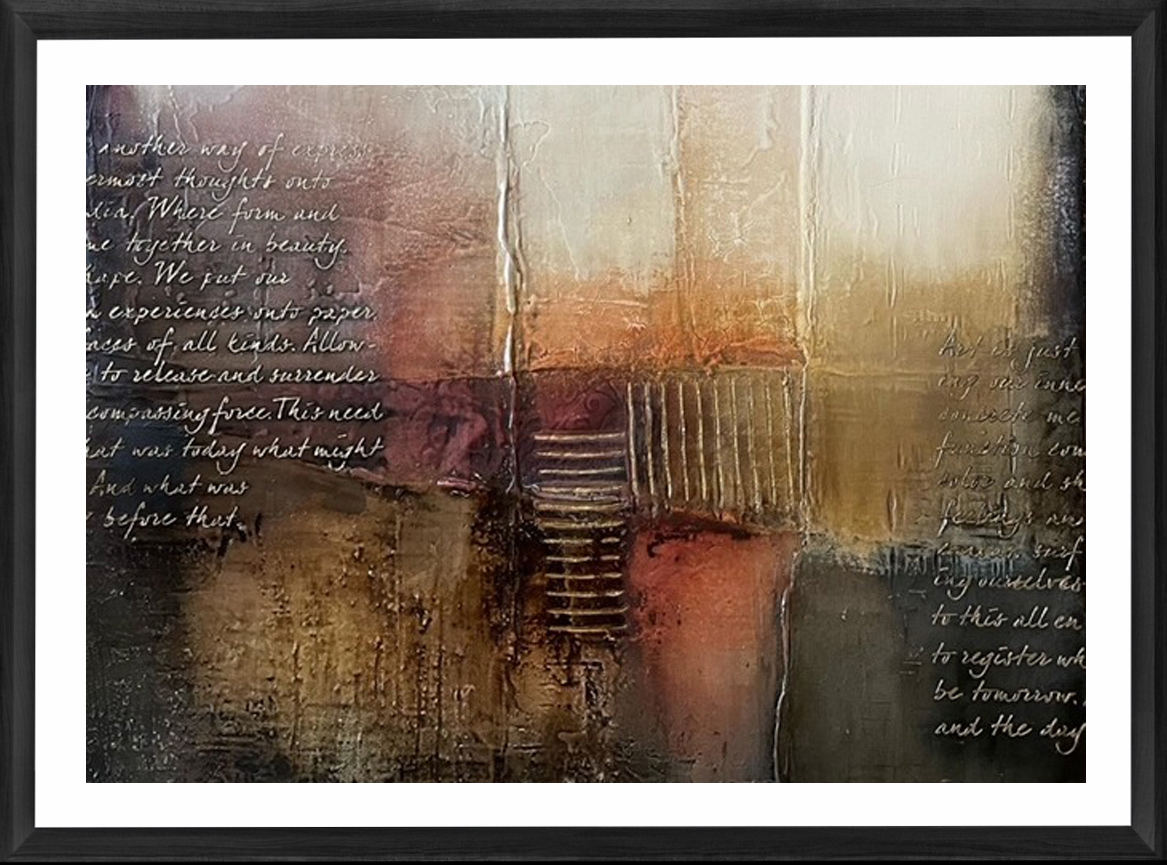 another way of express
ermost thoughts onto
dia. Where form and
me together in beauty.
hape. We put our
experiences onto paper,
aces of all kinds. Allow-
to release and surrender
compassing force. This need
hat was today what might
And what was
before that.
Art is just
ing our inne
concrete me
function com
color and sh
feelings an
canvas, surf
ing ourselves
to this all en
to register wh
be tomorrow.
and the day